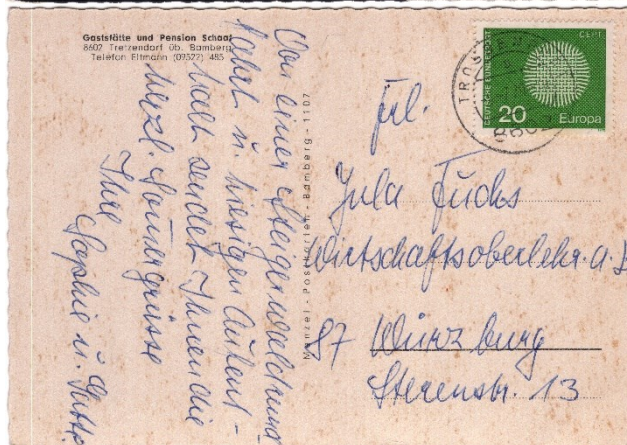 Gaststätte und Pension Schaaf
8602 Tretzendorf üb. Bamberg
Telefon Eltmann (09522) 485
Von einer Steigerwaldrund
fahrt u. hiesigen Aufent-
halt sendet Ihnen die
herzl. Sonntagsgrüsse
Ihre
Sophie u.
Menzel - Postkarten - Bamberg - 1107
CEPT
DEUTSCHE BUNDESPOST
20 Europa
8602
Frl.
Jula Fuchs
Wirtschaftsoberlehr. a. D
87 Würzburg
Sterenstr. 13